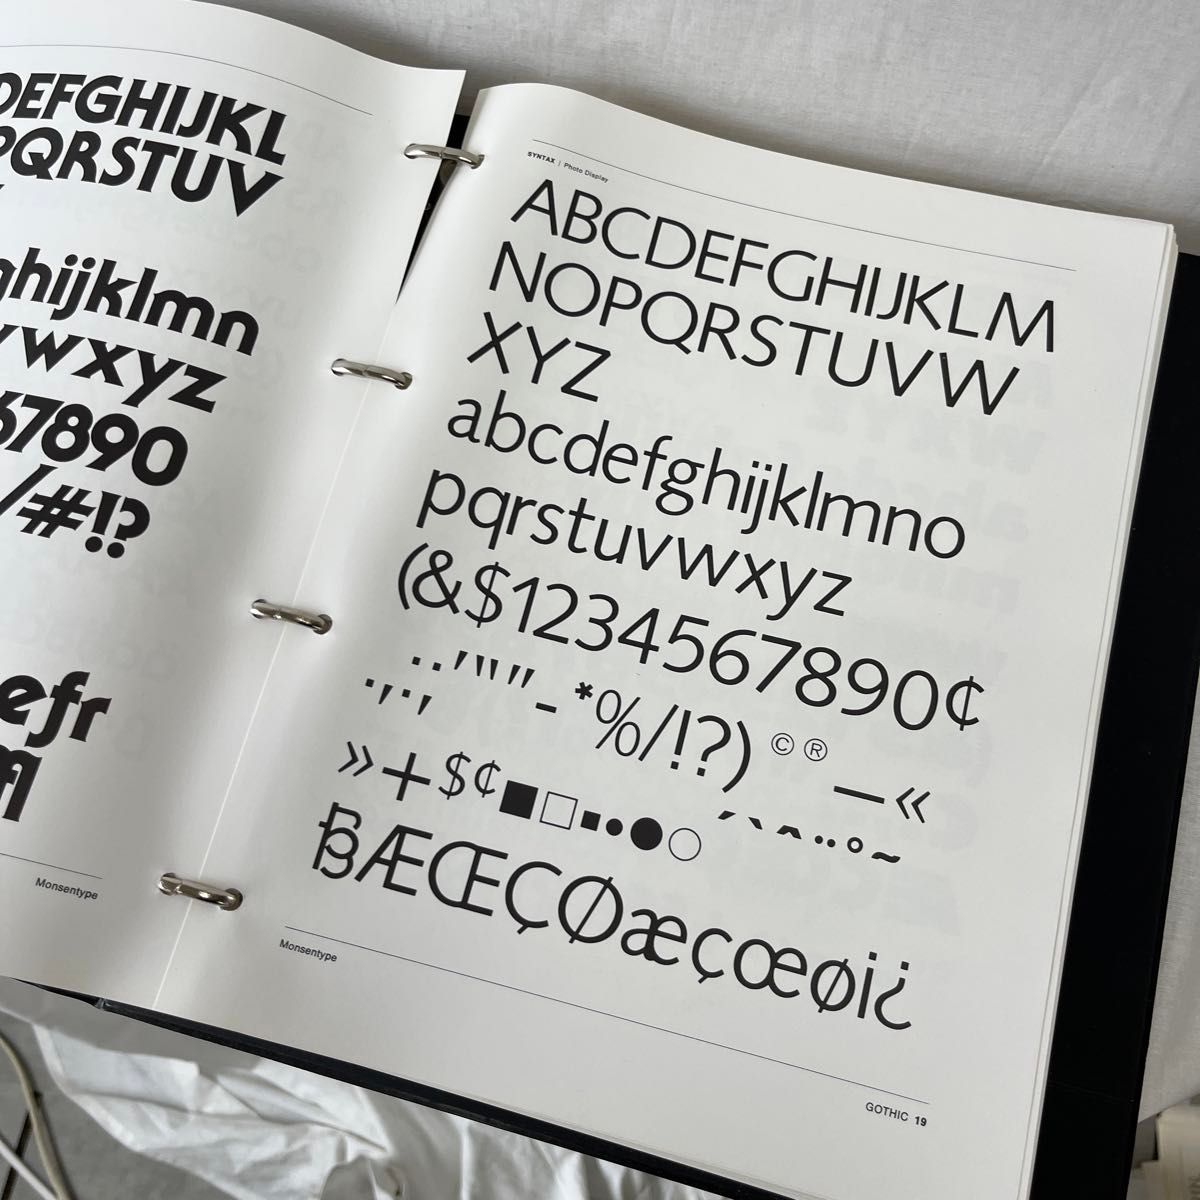 DEFGHIJKL
PQRSTUV
ghijklmn
vwxyz
67890
/#!?
efr
Monsentype
SYNTAX | Photo Display
ABCDEFGHIJKLM
NOPQRSTUVW
XYZ
abcdefghijklmno
pqrstuvwxyz
(&$1234567890¢
.,:;'""-*%/!?) ©® —«
»+$¢■□▪●●○´`^¨°~
ÆŒÇØæçœø¡¿
Monsentype
GOTHIC 19